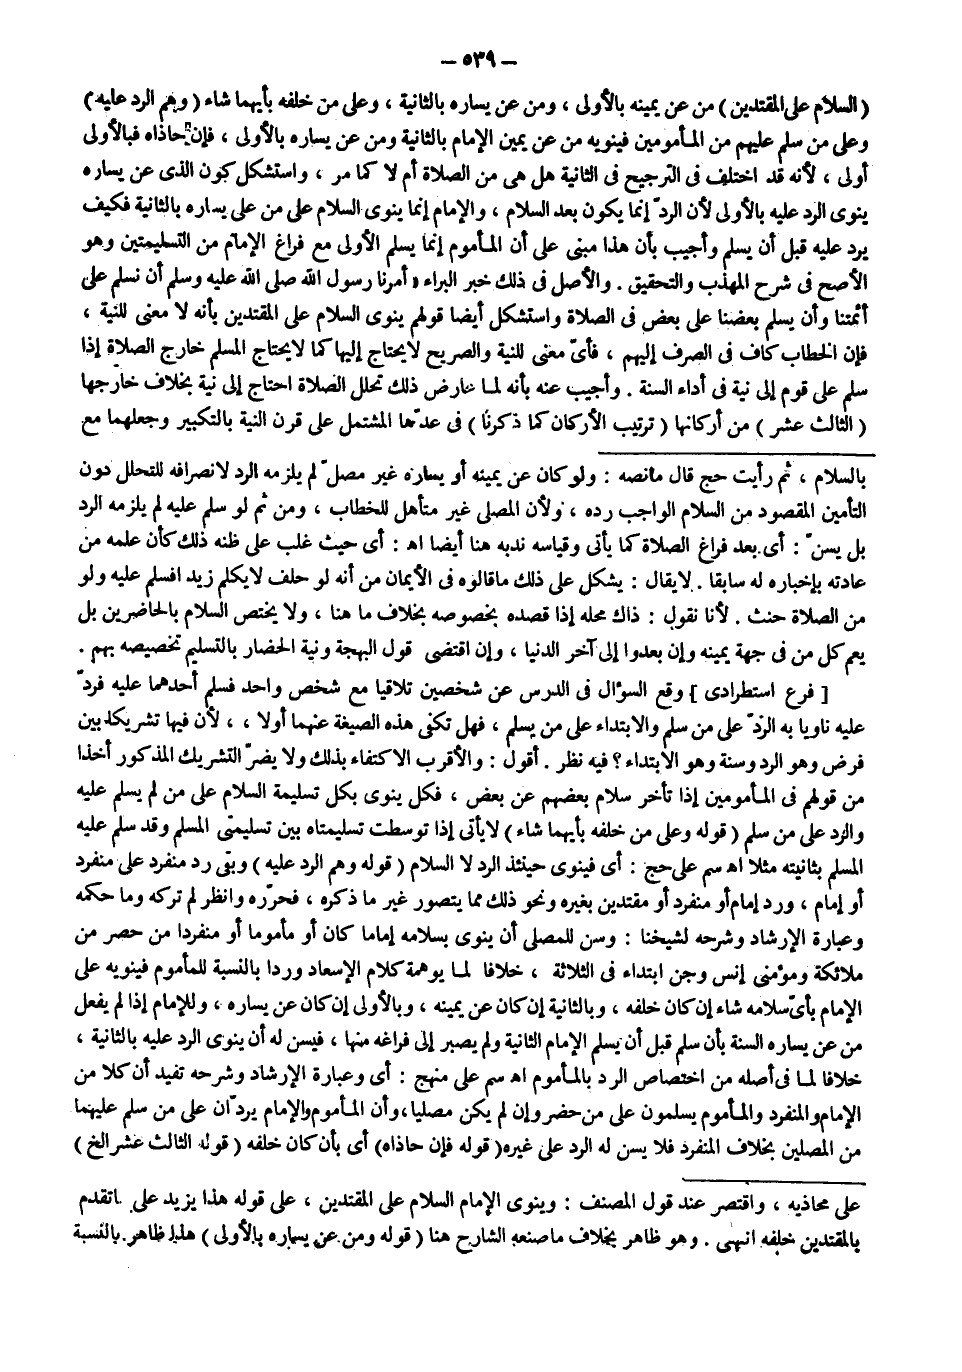 – ٥٣٩ –
(السلام على المقتدين) من عن يمينه بالأولى ، ومن عن يساره بالثانية ، وعلى من خلفه بأيهما شاء (وهم الرد عليه)
وعلى من سلم عليهم من المأمومين فينويه من عن يمين الإمام بالثانية ومن عن يساره بالأولى ، فإن حاذاه فبالأولى
أولى ، لأنه قد اختلف فى الترجيح فى الثانية هل هى من الصلاة أم لا كما مر ، واستشكل كون الذى عن يساره
ينوى الرد عليه بالأولى لأن الردّ إنما يكون بعد السلام ، والإمام إنما ينوى السلام على من على يساره بالثانية فكيف
يرد عليه قبل أن يسلم وأجيب بأن هذا مبنى على أن المأموم إنما يسلم الأولى مع فراغ الإمام من التسليمتين وهو
الأصح فى شرح المهذب والتحقيق . والأصل فى ذلك خبر البراء « أمرنا رسول الله صلى الله عليه وسلم أن نسلم على
أئمتنا وأن يسلم بعضنا على بعض فى الصلاة واستشكل أيضا قولهم ينوى السلام على المقتدين بأنه لا معنى للنية ،
فإن الخطاب كاف فى الصرف إليهم ، فأىّ معنى للنية والصريح لا يحتاج إليها كما لا يحتاج المسلم خارج الصلاة إذا
سلم على قوم إلى نية فى أداء السنة . وأجيب عنه بأنه لما عارض ذلك تحلل الصلاة احتاج إلى نية بخلاف خارجها
(الثالث عشر) من أركانها (ترتيب الأركان كما ذكرنا) فى عدّها المشتمل على قرن النية بالتكبير وجعلهما مع
بالسلام ، ثم رأيت حج قال مانصه : ولو كان عن يمينه أو يساره غير مصلّ لم يلزمه الرد لانصرافه للتحلل دون
التأمين المقصود من السلام الواجب رده ، ولأن المصلى غير متأهل للخطاب ، ومن ثم لو سلم عليه لم يلزمه الرد
بل يسنّ : أى بعد فراغ الصلاة كما يأتى وقياسه ندبه هنا أيضا اه : أى حيث غلب على ظنه ذلك كأن علمه من
عادته بإخباره له سابقا . لا يقال : يشكل على ذلك ماقالوه فى الأيمان من أنه لو حلف لا يكلم زيد افسلم عليه ولو
من الصلاة حنث . لأنا نقول : ذاك محله إذا قصده بخصوصه بخلاف ما هنا ، ولا يختص السلام بالحاضرين بل
يعم كل من فى جهة يمينه وإن بعدوا إلى آخر الدنيا ، وإن اقتضى قول البهجة ونية الحضار بالتسليم تخصيصه بهم .
[ فرع استطرادى ] وقع السؤال فى الدرس عن شخصين تلاقيا مع شخص واحد فسلم أحدهما عليه فردّ
عليه ناويا به الردّ على من سلم والابتداء على من يسلم ، فهل تكفى هذه الصيغة عنهما أولا ، ، لأن فيها تشريكا بين
فرض وهو الرد وسنة وهو الابتداء ؟ فيه نظر . أقول : والأقرب الاكتفاء بذلك ولا يضرّ التشريك المذكور أخذا
من قولهم فى المأمومين إذا تأخر سلام بعضهم عن بعض ، فكل ينوى بكل تسليمة السلام على من لم يسلم عليه
والرد على من سلم (قوله وعلى من خلفه بأيهما شاء) لا يأتى إذا توسطت تسليمتاه بين تسليمتى المسلم وقد سلم عليه
المسلم بثانيته مثلا اه سم على حج : أى فينوى حينئذ الرد لا السلام (قوله وهم الرد عليه) وبقى رد منفرد على منفرد
أو إمام ، ورد إمام أو منفرد أو مقتدين بغيره ونحو ذلك مما يتصور غير ما ذكره ، فحرّره وانظر لم تركه وما حكمه
وعبارة الإرشاد وشرحه لشيخنا : وسن للمصلى أن ينوى بسلامه إماما كان أو مأموما أو منفردا من حصر من
ملائكة ومؤمنى إنس وجن ابتداء فى الثلاثة ، خلافا لما يوهمة كلام الإسعاد وردا بالنسبة للمأموم فينويه على
الإمام بأىّ سلامه شاء إن كان خلفه ، وبالثانية إن كان عن يمينه ، وبالأولى إن كان عن يساره ، وللإمام إذا لم يفعل
من عن يساره السنة بأن سلم قبل أن يسلم الإمام الثانية ولم يصبر إلى فراغه منها ، فيسن له أن ينوى الرد عليه بالثانية ،
خلافا لما فى أصله من اختصاص الرد بالمأموم اه سم على منهج : أى وعبارة الإرشاد وشرحه تفيد أن كلا من
الإمام والمنفرد والمأموم يسلمون على من حضر وإن لم يكن مصليا ، وأن المأموم والإمام يردّان على من سلم عليهما
من المصلين بخلاف المنفرد فلا يسن له الرد على غيره (قوله فإن حاذاه) أى بأن كان خلفه (قوله الثالث عشر الخ)
على محاذيه ، واقتصر عند قول المصنف : وينوى الإمام السلام على المقتدين ، على قوله هذا يزيد على اتقدم
بالمقتدين خلفه انتهى . وهو ظاهر بخلاف ماصنعه الشارح هنا (قوله ومن عن يساره بالأولى) هذا ظاهر بالنسبة